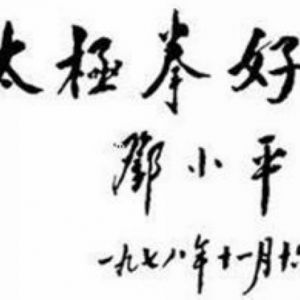 太極拳好
鄧小平
一九七八年十一月十六